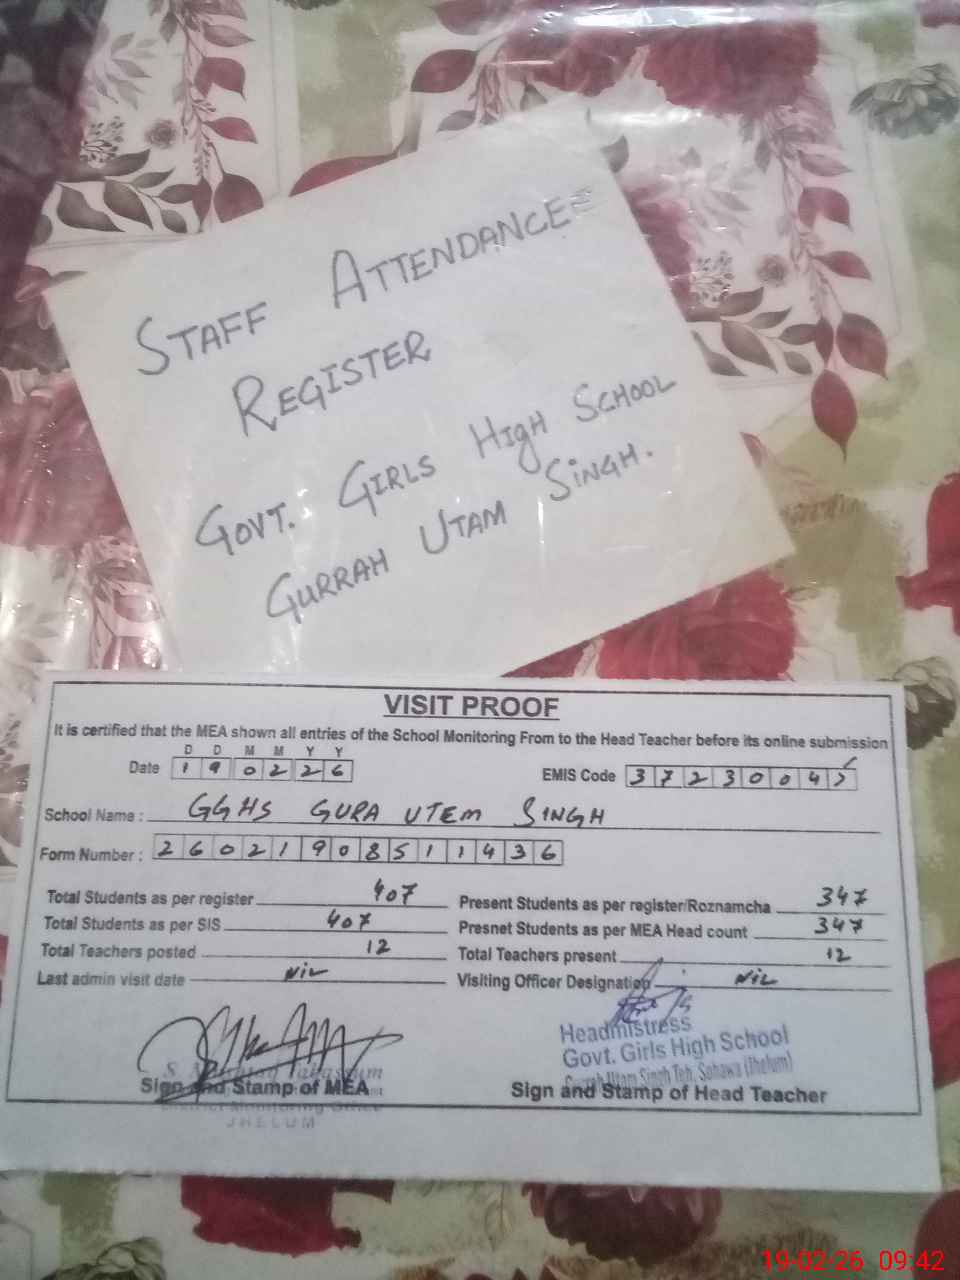 STAFF ATTENDANCE
REGISTER
GOVT. GIRLS HIGH SCHOOL
GURRAH UTAM SINGH.
VISIT PROOF
It is certified that the MEA shown all entries of the School Monitoring From to the Head Teacher before its online submission
D D M M Y Y
Date 1 9 0 2 2 6 EMIS Code 3 7 2 3 0 0 4
School Name : GGHS GURA UTEM SINGH
Form Number : 2 6 0 2 1 9 0 8 5 1 1 4 3 6
Total Students as per register 407 Present Students as per register/Roznamcha 347
Total Students as per SIS 407 Presnet Students as per MEA Head count 347
Total Teachers posted 12 Total Teachers present 12
Last admin visit date NIL Visiting Officer Designation NIL
Headmistress
Govt. Girls High School
Gurrah Utam Singh Teh. Sohawa (Jhelum)
Sign and Stamp of MEA Sign and Stamp of Head Teacher
District Monitoring Office
JHELUM
19-02-26 09:42